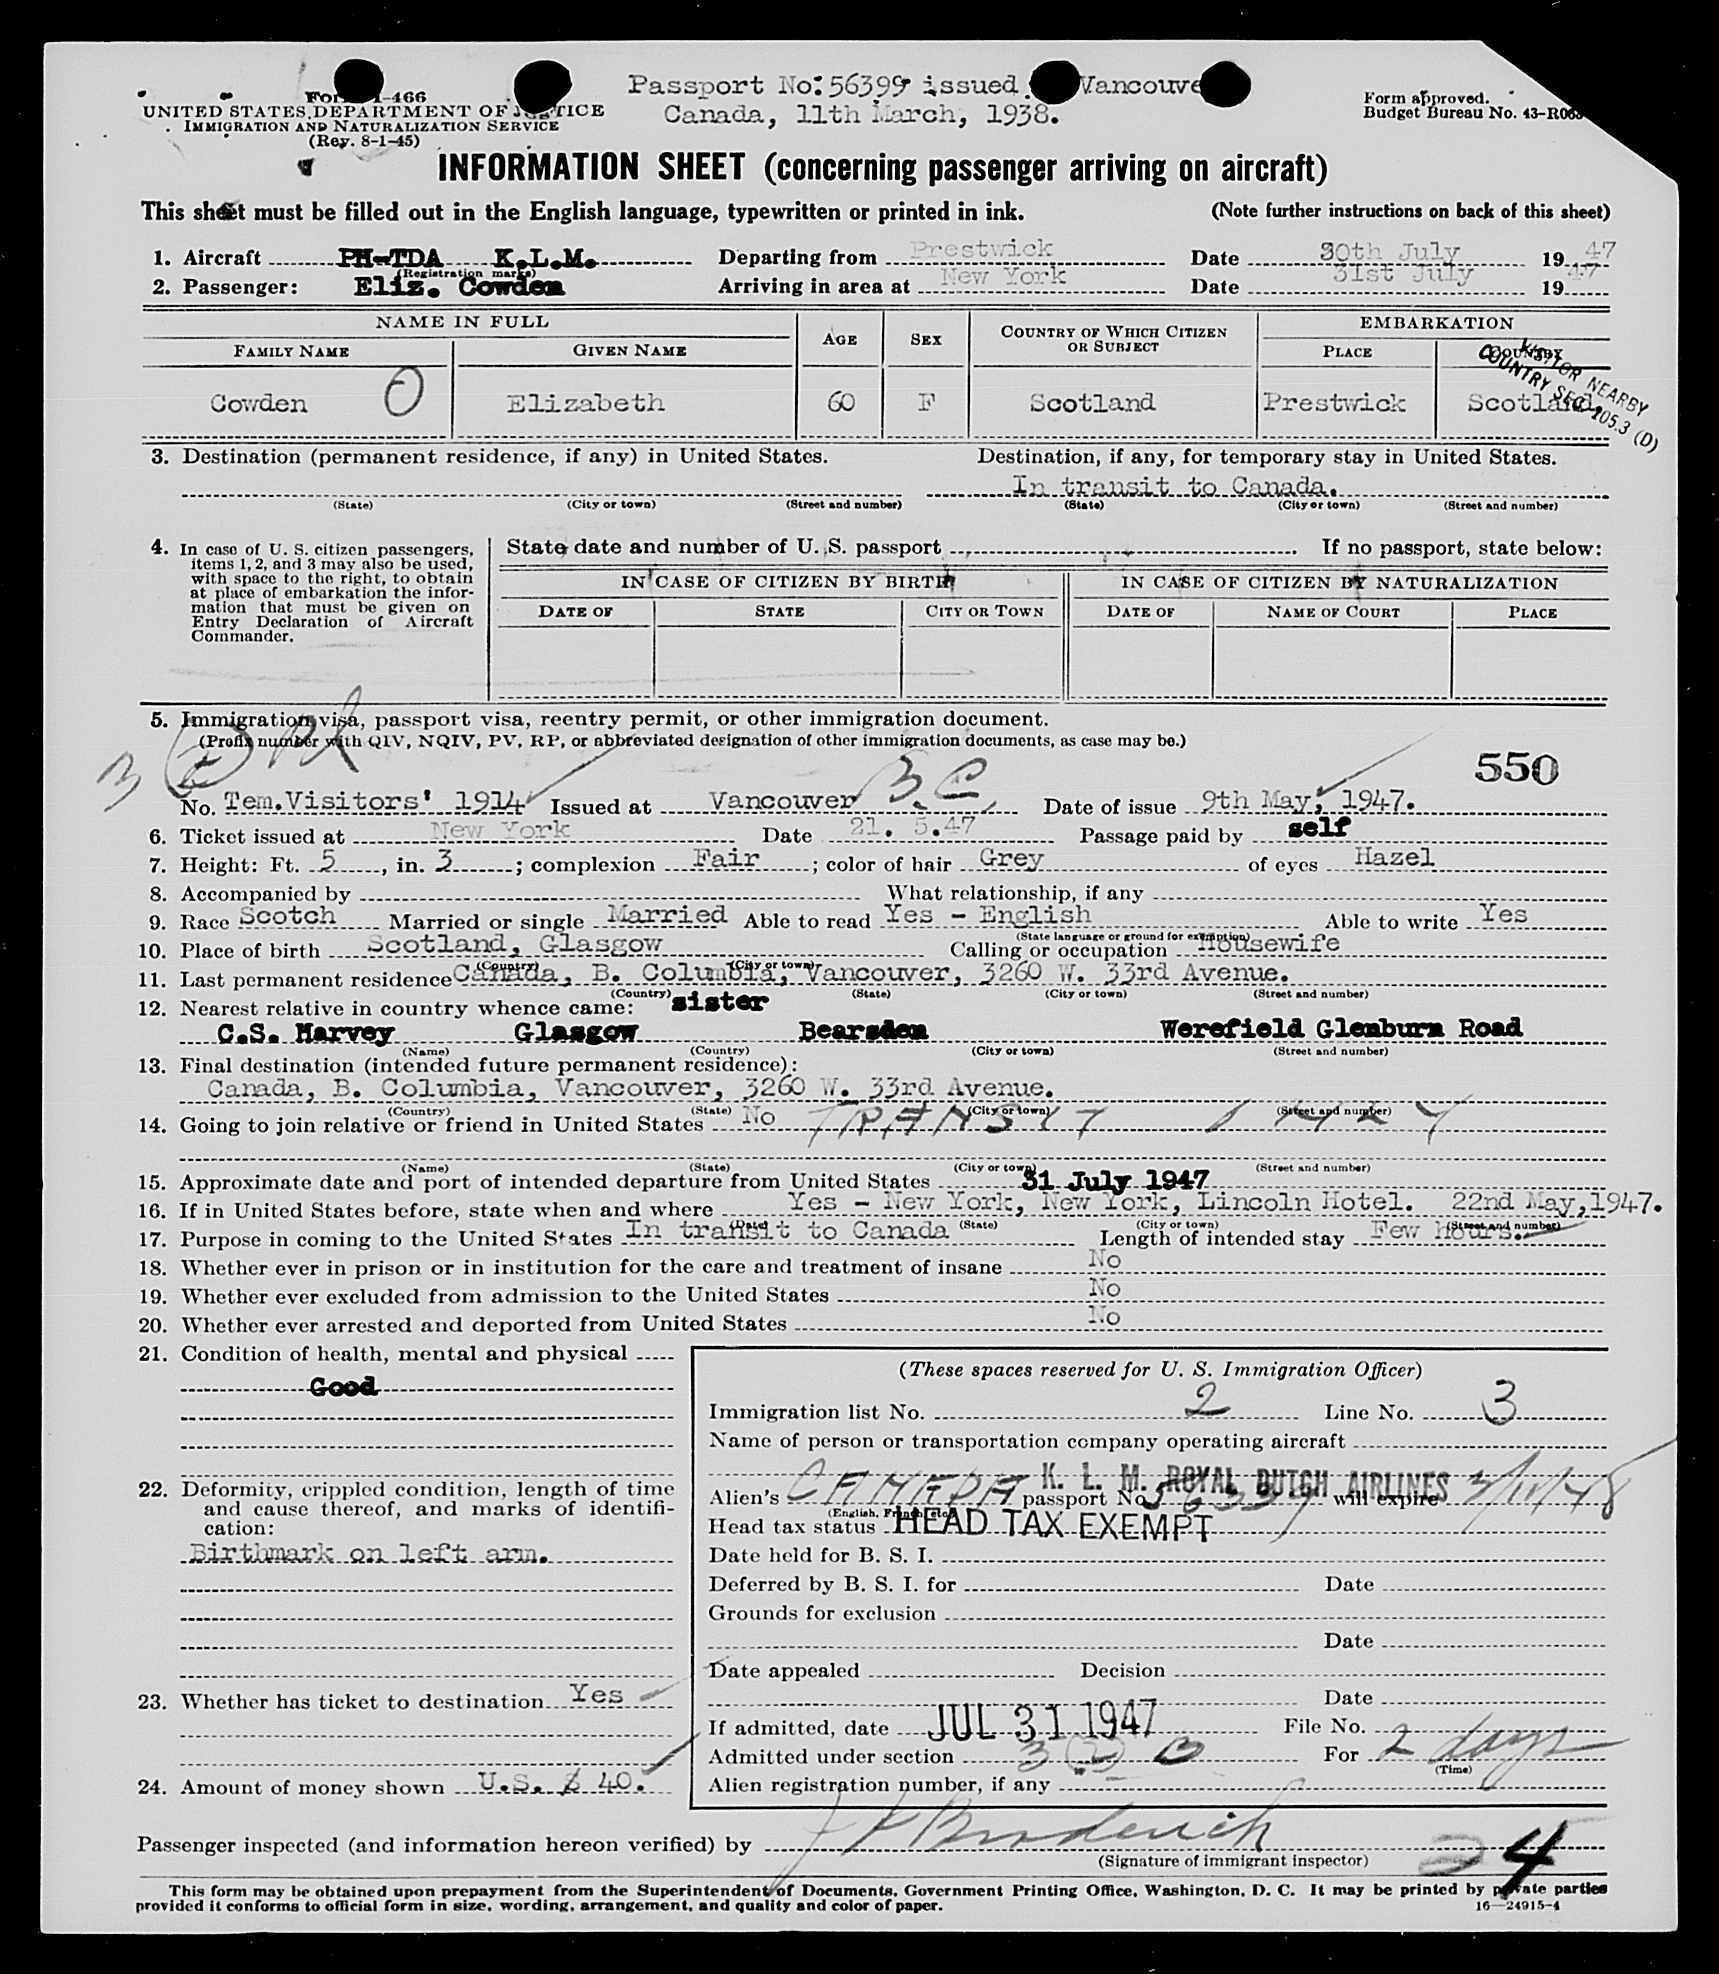 Passport No: 56399 issued Vancouver
Form I-466
UNITED STATES DEPARTMENT OF JUSTICE
Canada, 11th March, 1938.
Form approved.
Budget Bureau No. 43-R068
IMMIGRATION AND NATURALIZATION SERVICE
(Rev. 8-1-45)
INFORMATION SHEET (concerning passenger arriving on aircraft)
This sheet must be filled out in the English language, typewritten or printed in ink. (Note further instructions on back of this sheet)
1. Aircraft PH-TDA K.L.M. Departing from Prestwick Date 30th July 1947
(Registration marks)
2. Passenger: Eliz. Cowden Arriving in area at New York Date 31st July 1947
NAME IN FULL AGE SEX COUNTRY OF WHICH CITIZEN OR SUBJECT EMBARKATION
FAMILY NAME GIVEN NAME PLACE COUNTRY
VISITOR NEARBY
COUNTRY SEC. 105.3 (D)
Cowden O Elizabeth 60 F Scotland Prestwick Scotland
3. Destination (permanent residence, if any) in United States. Destination, if any, for temporary stay in United States.
In transit to Canada.
(State) (City or town) (Street and number) (State) (City or town) (Street and number)
4. In case of U. S. citizen passengers, items 1, 2, and 3 may also be used, with space to the right, to obtain at place of embarkation the information that must be given on Entry Declaration of Aircraft Commander.
State date and number of U. S. passport If no passport, state below:
IN CASE OF CITIZEN BY BIRTH IN CASE OF CITIZEN BY NATURALIZATION
DATE OF STATE CITY OR TOWN DATE OF NAME OF COURT PLACE
5. Immigration visa, passport visa, reentry permit, or other immigration document.
(Prefix number with QIV, NQIV, PV, RP, or abbreviated designation of other immigration documents, as case may be.)
550
3 B C
No. Tem.Visitors' 1914 Issued at Vancouver Date of issue 9th May, 1947.
6. Ticket issued at New York Date 21. 5.47 Passage paid by self
7. Height: Ft. 5, in. 3; complexion Fair; color of hair Grey of eyes Hazel
8. Accompanied by What relationship, if any
9. Race Scotch Married or single Married Able to read Yes - English Able to write Yes
(State language or ground for exemption)
10. Place of birth Scotland, Glasgow Calling or occupation Housewife
(Country) (City or town)
11. Last permanent residence Canada, B. Columbia, Vancouver, 3260 W. 33rd Avenue.
(Country) (State) (City or town) (Street and number)
12. Nearest relative in country whence came: sister
C.S. Harvey Glasgow Bearsden Werefield Glenburn Road
(Name) (Country) (City or town) (Street and number)
13. Final destination (intended future permanent residence):
Canada, B. Columbia, Vancouver, 3260 W. 33rd Avenue.
(Country) (State) (City or town) (Street and number)
14. Going to join relative or friend in United States No TRANSIT
(Name) (State) (City or town) (Street and number)
15. Approximate date and port of intended departure from United States 31 July 1947
16. If in United States before, state when and where Yes - New York, New York, Lincoln Hotel. 22nd May, 1947.
(Date) (State) (City or town) (Street and number)
17. Purpose in coming to the United States In transit to Canada Length of intended stay Few hours.
18. Whether ever in prison or in institution for the care and treatment of insane No
19. Whether ever excluded from admission to the United States No
20. Whether ever arrested and deported from United States No
21. Condition of health, mental and physical
Good
22. Deformity, crippled condition, length of time and cause thereof, and marks of identification:
Birthmark on left arm.
23. Whether has ticket to destination Yes
24. Amount of money shown U.S. $ 40.
(These spaces reserved for U. S. Immigration Officer)
Immigration list No. 2 Line No. 3
Name of person or transportation company operating aircraft
K. L. M. ROYAL DUTCH AIRLINES
Alien's CANADA passport No. 56399 will expire 3/11/48
(English, French, etc.)
Head tax status HEAD TAX EXEMPT
Date held for B. S. I.
Deferred by B. S. I. for Date
Grounds for exclusion
Date
Date appealed Decision
Date
If admitted, date JUL 31 1947 File No.
Admitted under section 3 (2) B For 2 days
(Time)
Alien registration number, if any
Passenger inspected (and information hereon verified) by
(Signature of immigrant inspector)
4
This form may be obtained upon prepayment from the Superintendent of Documents, Government Printing Office, Washington, D. C. It may be printed by private parties
provided it conforms to official form in size, wording, arrangement, and quality and color of paper.
16—24915-4